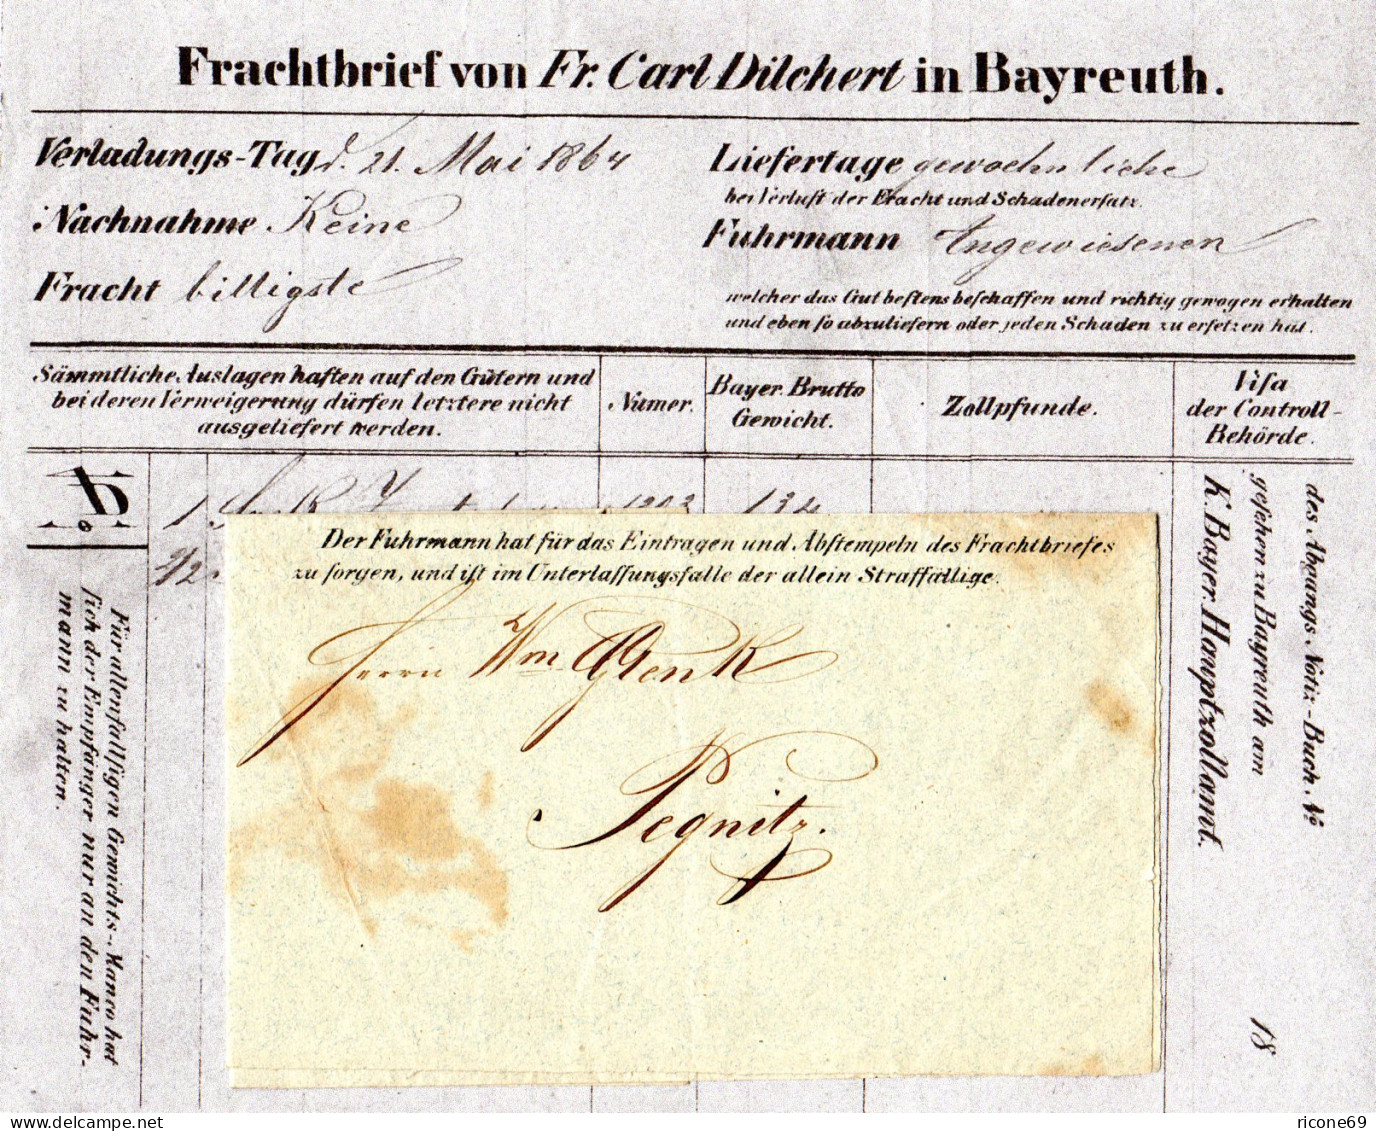 Frachtbrief von Fr. Carl Dilchert in Bayreuth.
Verladungs-Tag d. 21. Mai 1864
Nachnahme Keine
Fracht billigste
Liefertage gewoehnliche
bei Verluſt der Fracht und Schadenerſatz.
Fuhrmann Angewiesenen
welcher das Gut beſtens beſchaffen und richtig gewogen erhalten
und eben ſo abzuliefern oder jeden Schaden zu erſetzen hat.
Sämmtliche Auslagen haften auf den Gütern und
bei deren Verweigerung dürfen letztere nicht
ausgeliefert werden.
Numer.
Bayer. Brutto
Gewicht.
Zollpfunde.
Viſa
der Controll-
Behörde.
1 1203 134
42
Der Fuhrmann hat für das Eintragen und Abſtempeln des Frachtbriefes
zu ſorgen, und iſt im Unterlaſſungsfalle der allein Straffällige.
Herrn Wm Glenk
Pegnitz.
Für allenfallſigen Gewichts-Manco hat
ſich der Empfänger nur an den Fuhr-
mann zu halten.
des Abgangs Notiz-Buch. No
geſehen zu Bayreuth am 18
K. Bayer. Hauptzollamt.
ricone69